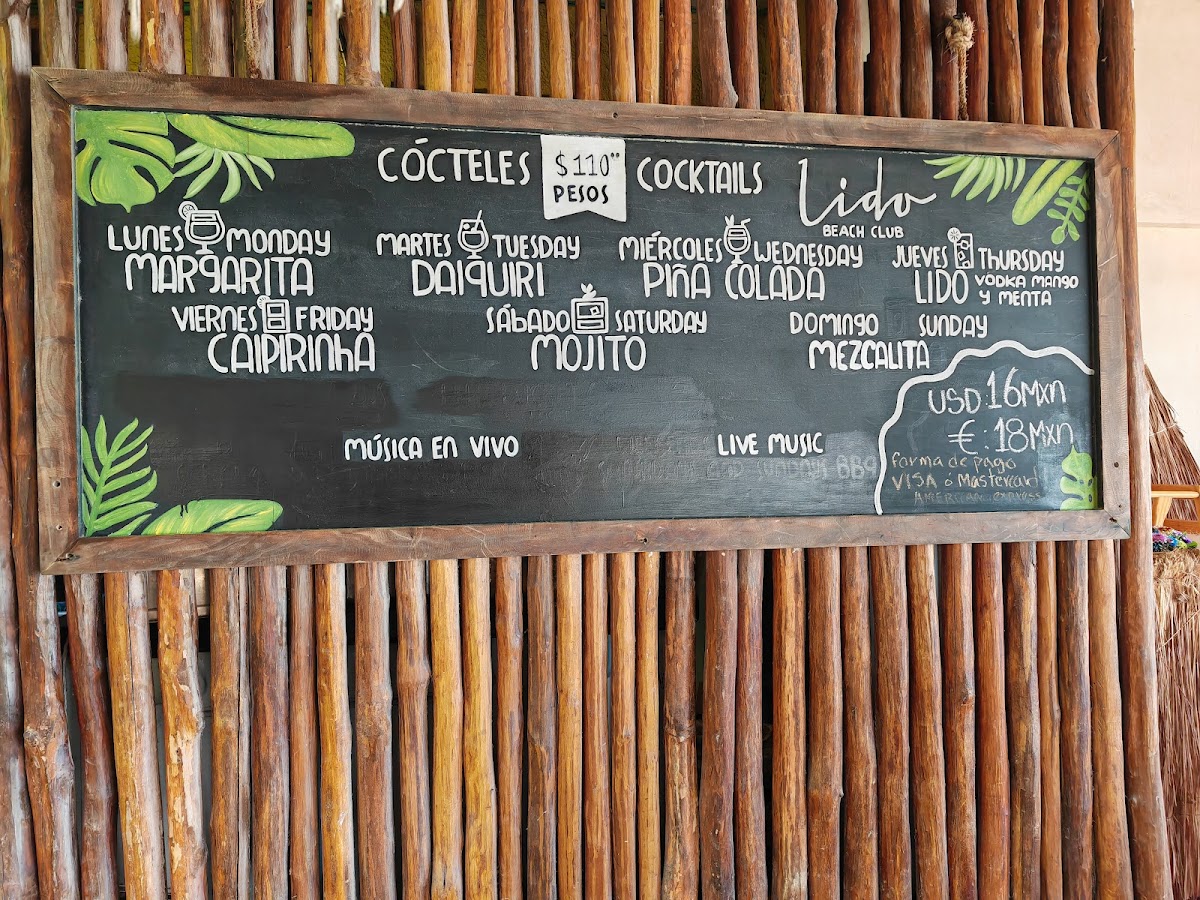 CÓCTELES $110" PESOS COCKTAILS
Lido
BEACH CLUB
LUNES MONDAY
MARGARITA
MARTES TUESDAY
DAIQUIRI
MIÉRCOLES WEDNESDAY
PIÑA COLADA
JUEVES THURSDAY
LIDO VODKA MANGO
Y MENTA
VIERNES FRIDAY
CAIPIRINHA
SÁBADO SATURDAY
MOJITO
DOMINGO SUNDAY
MEZCALITA
MÚSICA EN VIVO LIVE MUSIC
SUNDAY BBQ
USD:16Mxn
€:18Mxn
forma de pago
VISA ó Mastercard
AMERICAN express